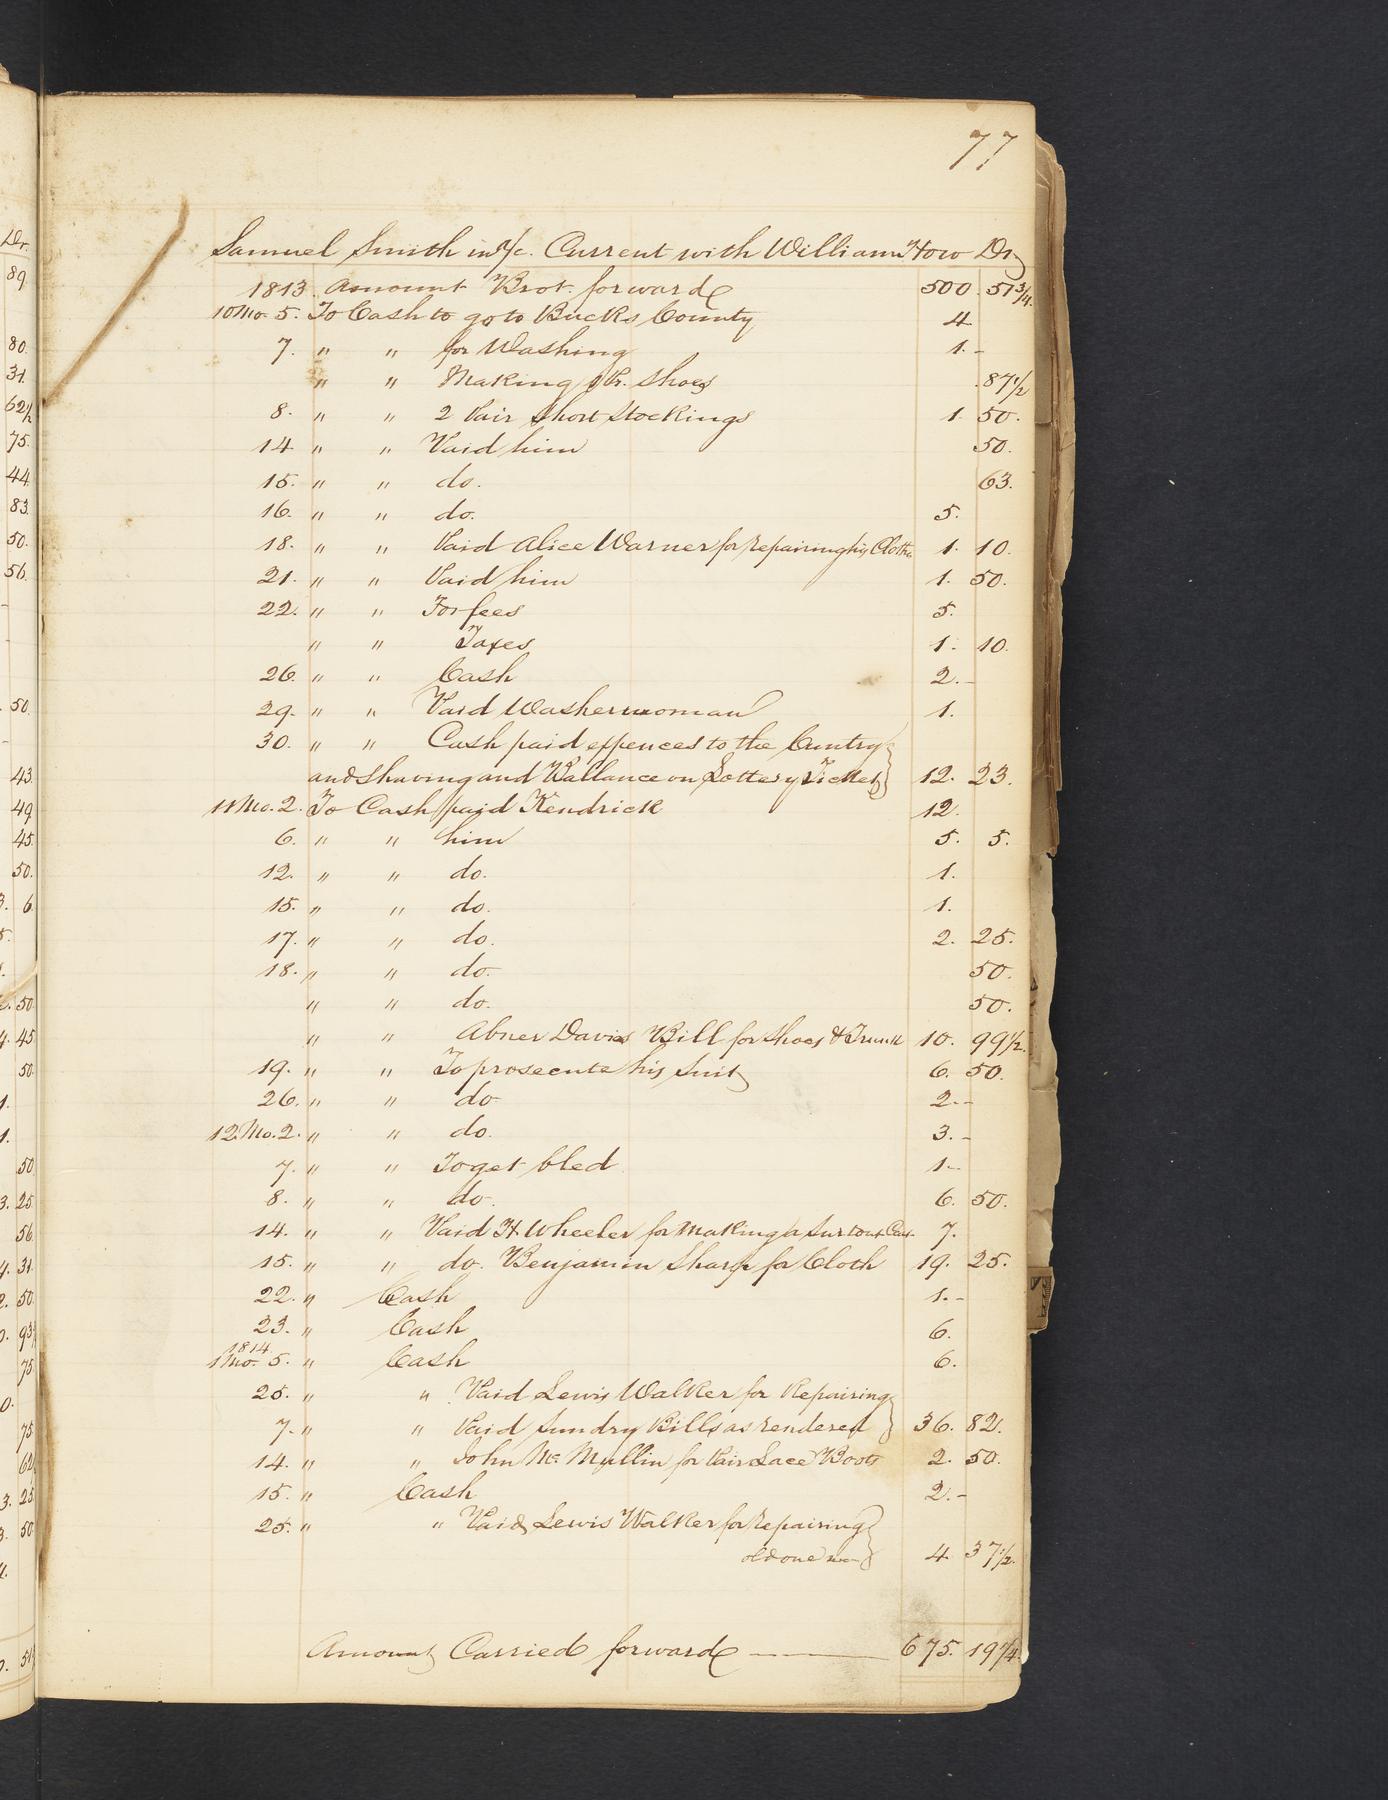 77
Samuel Smith in a/c. Current with William How Dr.
1813. Amount Brot. forward 500. 51 3/4.
10 Mo. 5. To Cash to go to Bucks County 4
7. " " for Washing 1.-
" " Making 1 Pr. Shoes .87 1/2
8. " " 2 Pair Short Stockings 1. 50.
14. " " Paid him 50.
15. " " do. 63.
16. " " do. 5.
18. " " Paid Alice Warner for repairing his Cloths 1. 10.
21. " " Paid him 1. 50.
22. " " For fees 5.
" " Taxes 1. 10.
26. " " Cash 2.-
29. " " Paid Washerwoman 1.
30. " " Cash paid expences to the Cuntry
and Shaving and Ballance on Lottery Ticket 12. 23.
11 Mo. 2. To Cash paid Kendrick 12.
6. " " him 5. 5.
12. " " do. 1.
15. " " do. 1.
17. " " do. 2. 25.
18. " " do. 50.
" " do. 50.
" " Abner Davies Bill for Shoes & Trunk 10. 99 1/2.
19. " " To prosecute his Suit 6. 50.
26. " " do 2.-
12 Mo. 2. " " do. 3.-
7. " " To get bled 1-
8. " " do. 6. 50.
14. " " Paid H. Wheeler for Making a Surtout Coat. 7.
15. " " do. Benjamin Sharp for Cloth 19. 25.
22. " Cash 1.-
23. " Cash 6.
1814
1 Mo. 5. " Cash 6.
25. " " Paid Lewis Walker for Repairing
7. " " Paid Sundry Bills as rendered 36. 82.
14. " " John Mc. Mullin for Pair Lace Boots 2. 50.
15. " Cash 2.-
25. " " Paid Lewis Walker for repairing
old one 4. 37 1/2.
Amount Carried forward 675. 19 1/4.